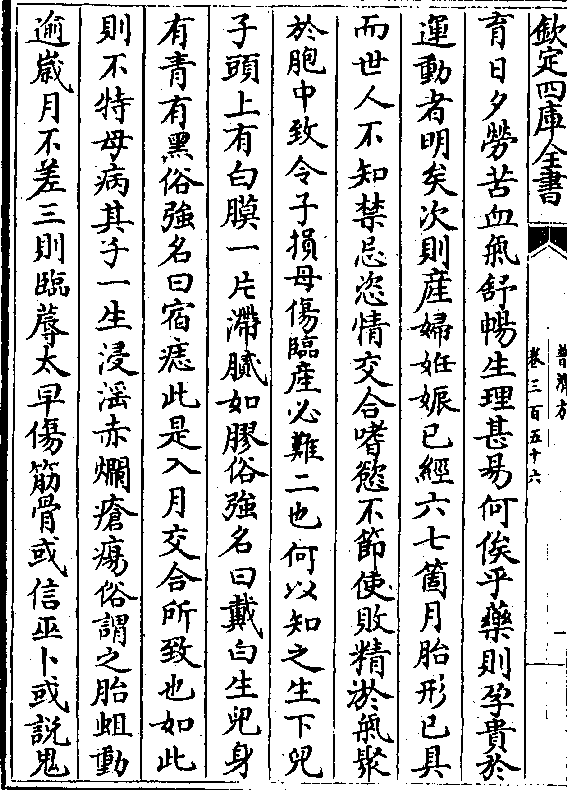 欽定四庫全書
普濟方
卷三百五十六
育日夕勞苦血氣舒暢生理甚易何俟乎藥則孕貴於
運動者明矣次則産婦姙娠已經六七箇月胎形已具
而世人不知禁忌恣情交合嗜慾不節使敗精淤氣聚
於胞中致令子損母傷臨産必難二也何以知之生下兒
子頭上有白膜一片滯膩如膠俗強名曰戴白生兒身
有青有黑俗強名曰宿痣此是入月交合所致也如此
則不特母病其子一生浸滛赤爛瘡瘍俗謂之胎蛆動
逾嵗月不差三則臨蓐太早傷筋骨或信巫卜或説鬼